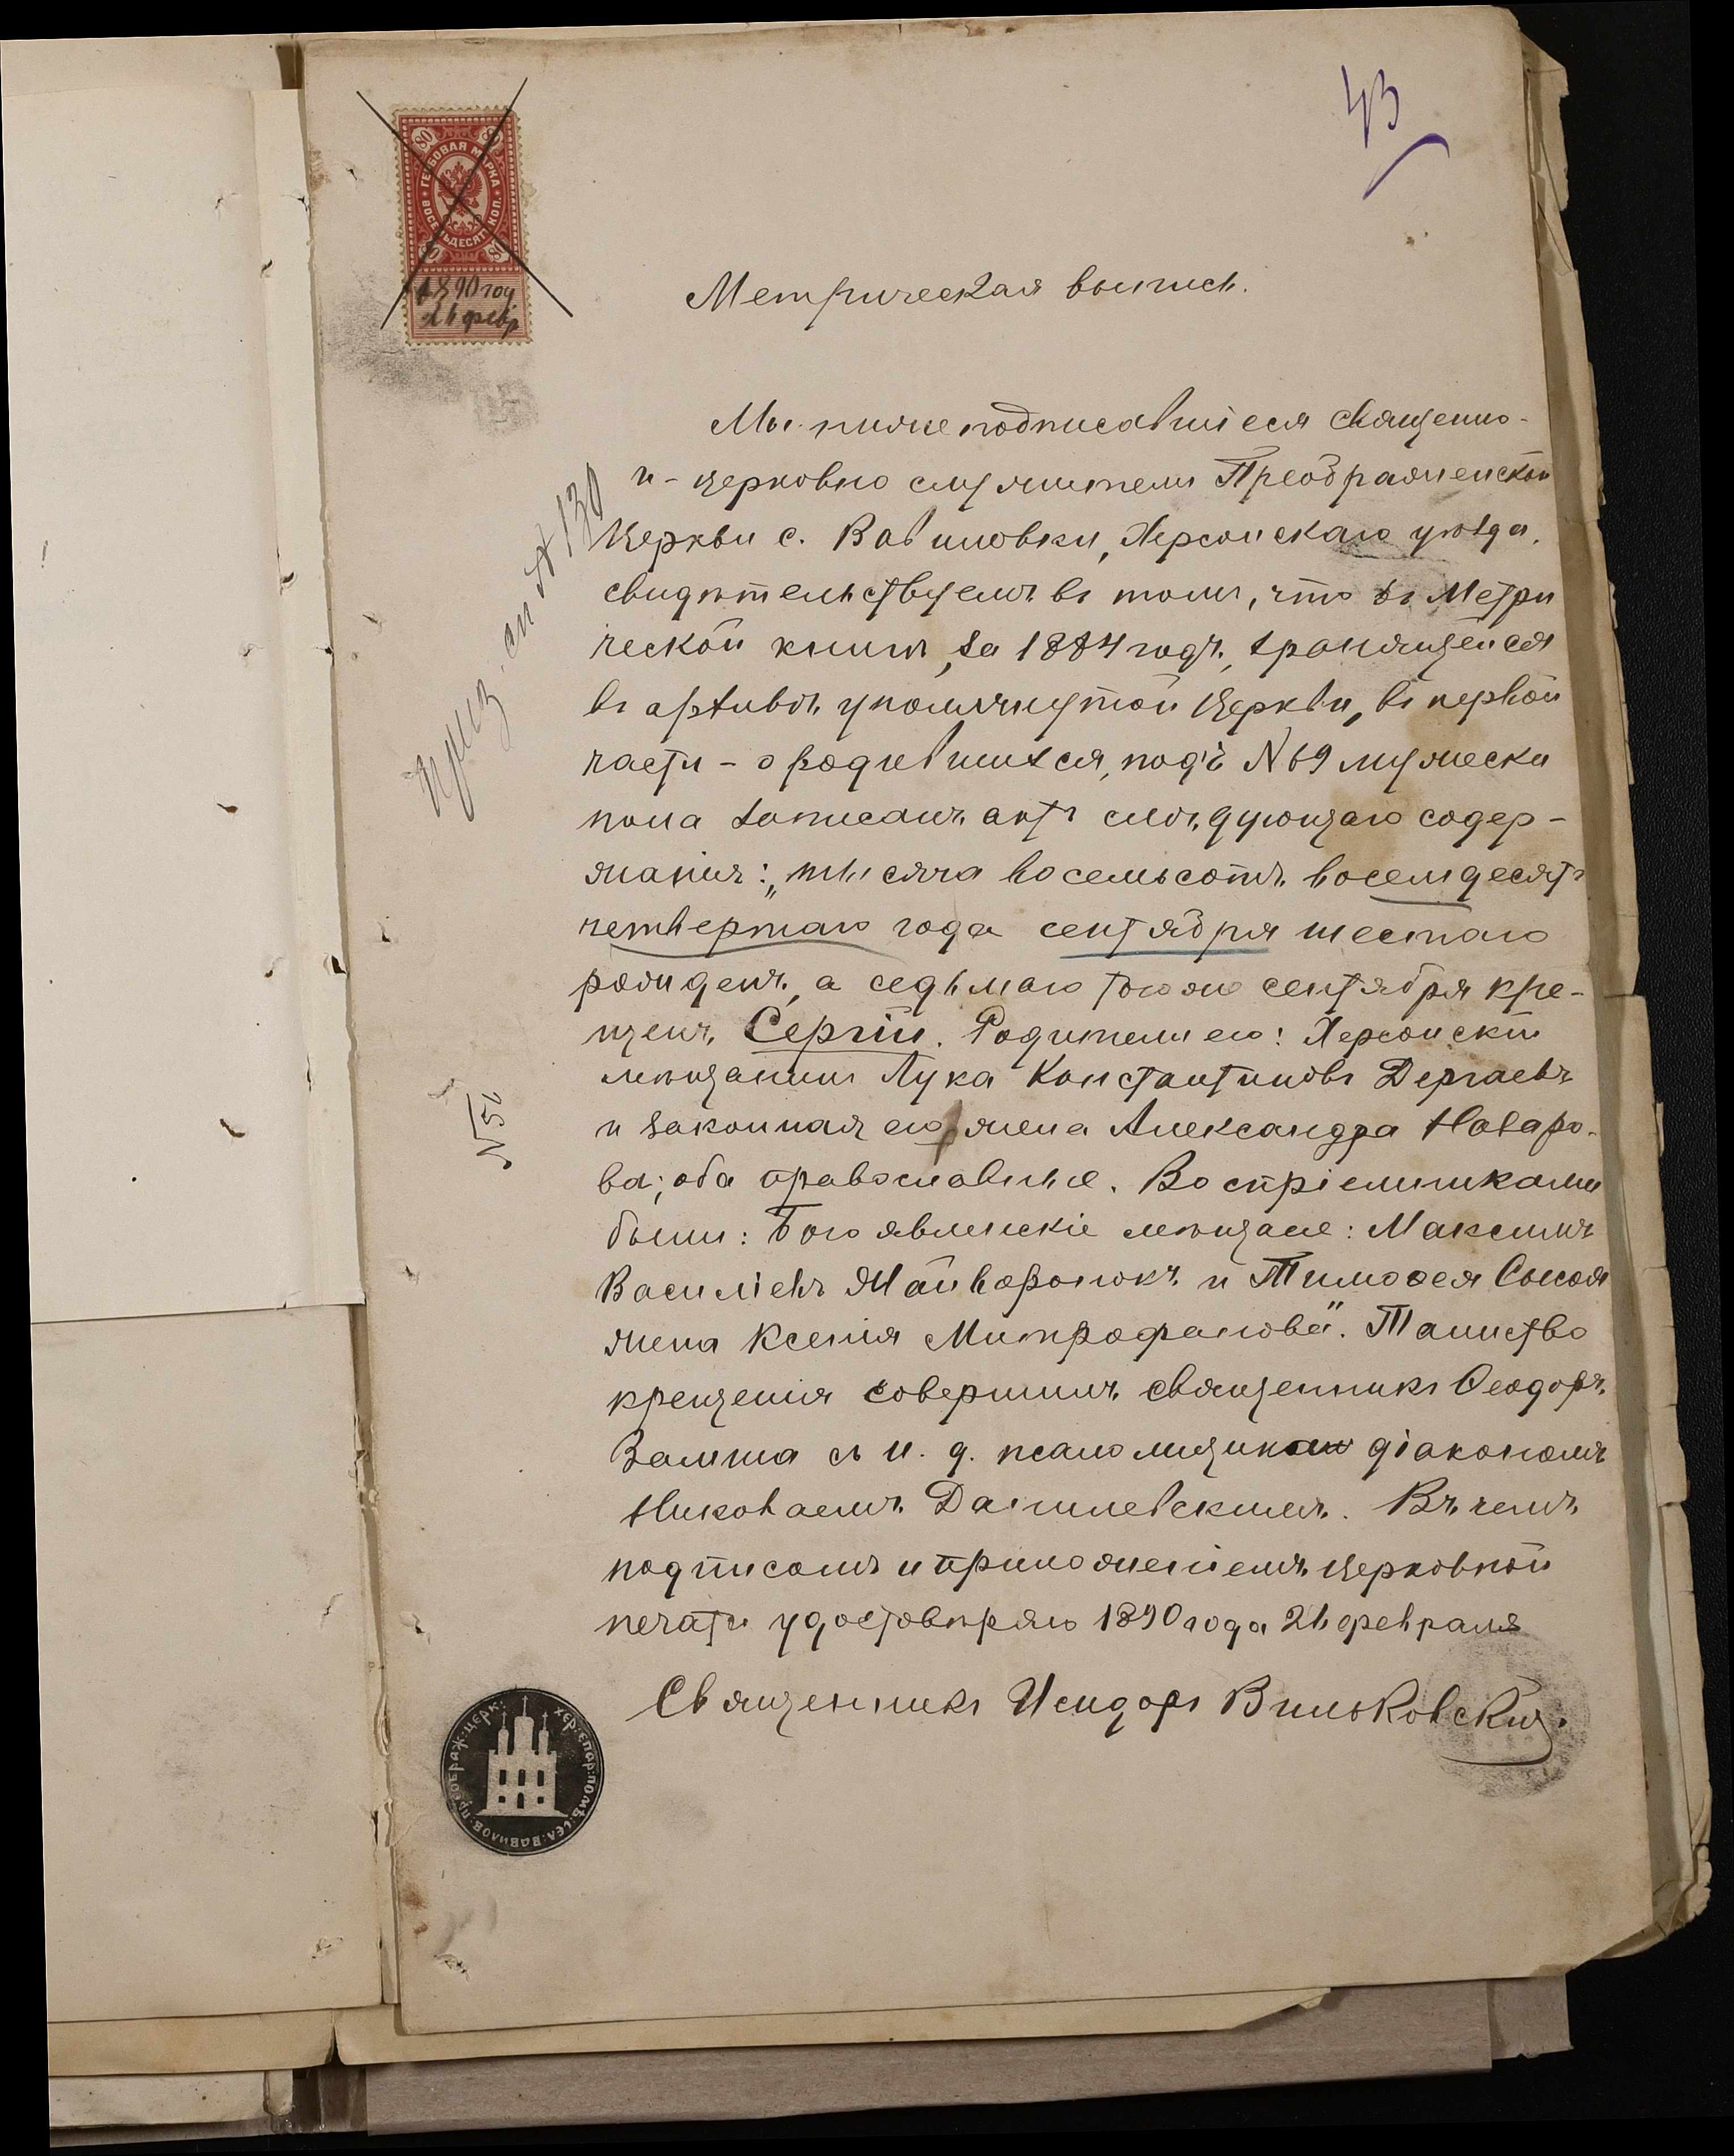 43
ГЕРБОВАЯ МАРКА
ВОСЕМЬДЕСЯТ КОП.
80 80
80 80
1890 год
21 февр
Метрическая выпись.
Мы нижеподписавшіеся священно-
и - церковно служители Преображенской
Церкви с. Вавиловки, Херсонскаго уѣзда,
свидѣтельствуемъ въ томъ, что въ Метри
ческой книгѣ, за 1884 годъ, хранящейся
въ архивѣ упомянутой Церкви, въ первой
части - о родившихся, подъ N 69 мужеска
пола записанъ актъ слѣдующаго содер-
жанія: „тысяча восемьсотъ восемдесятъ
четвертаго года сентября шестаго
рожденъ, а седьмаго тогоже сентября кре-
щенъ Сергій. Родители его: Херсонскій
мѣщанинъ Лука Константиновъ Дергаевъ
и законная его жена Александра Назаро-
ва; оба православные. Воспріемниками
были: Богоявленскіе мѣщане: Максимъ
Василіевъ Жайворонокъ и Тимоѳея Сысоя
жена Ксенія Митрофанова". Таинство
крещенія совершилъ священникъ Ѳеодоръ
Замша съ и. д. псаломщика діакономъ
Николаемъ Данилевскимъ. Въ чемъ
подписомъ и приложеніемъ церковной
печати удостовѣряю 1890 года 21 февраля
Священникъ Исидоръ Виньковскій.
N 130
N 50
ХЕР: ЕПАР: ПОМѢ: СЕЛ: ВАВИЛОВ: ПРЕОБРАЖ: ЦЕРК: